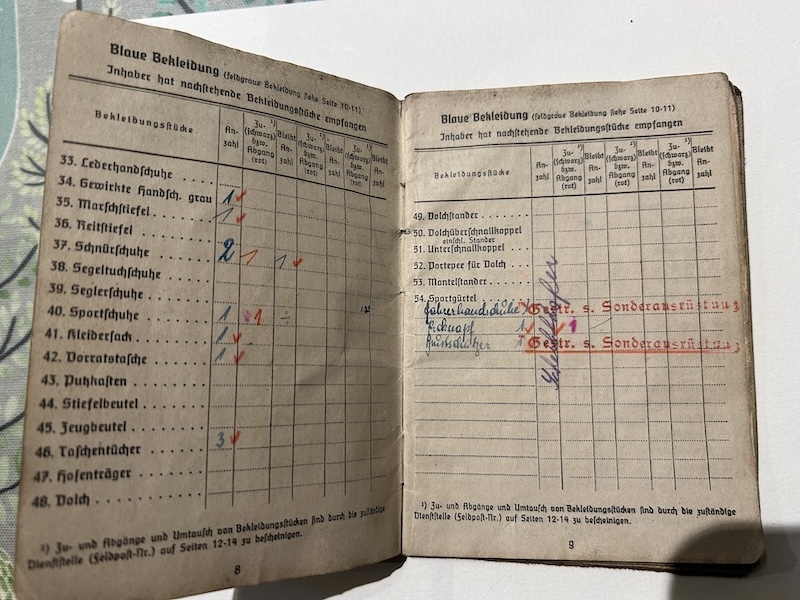 Blaue Bekleidung (feldgraue Bekleidung siehe Seite 10-11)
Inhaber hat nachstehende Bekleidungsstücke empfangen
Bekleidungsstücke
An-
zahl
Zu- ¹)
(schwarz)
bzw.
Abgang
(rot)
Bleibt
An-
zahl
Zu- ¹)
(schwarz)
bzw.
Abgang
(rot)
Bleibt
An-
zahl
Zu- ¹)
(schwarz)
bzw.
Abgang
(rot)
Bleibt
An-
zahl
33. Lederhandschuhe
34. Gewirkte Handsch. grau 1
35. Marschstiefel 1
36. Reitstiefel
37. Schnürschuhe 2 1 1
38. Segeltuchschuhe
39. Seglerschuhe
40. Sportschuhe 1 1 -
41. Kleidersack 1
42. Vorratstasche 1
43. Putzkasten
44. Stiefelbeutel
45. Zeugbeutel
46. Taschentücher 3
47. Hosenträger
48. Dolch
¹) Zu- und Abgänge und Umtausch von Bekleidungsstücken sind durch die zuständige
Dienststelle (Feldpost-Nr.) auf Seiten 12-14 zu bescheinigen.
8
Blaue Bekleidung (feldgraue Bekleidung siehe Seite 10-11)
Inhaber hat nachstehende Bekleidungsstücke empfangen
Bekleidungsstücke
An-
zahl
Zu- ¹)
(schwarz)
bzw.
Abgang
(rot)
Bleibt
An-
zahl
Zu- ¹)
(schwarz)
bzw.
Abgang
(rot)
Bleibt
An-
zahl
Zu- ¹)
(schwarz)
bzw.
Abgang
(rot)
Bleibt
An-
zahl
49. Dolchstander
50. Dolchüberschnallkoppel
einschl. Stander
51. Unterschnallkoppel
52. Portepee für Dolch
53. Mantelständer
54. Sportgürtel
Fahrerhandschuhe Gestr. s. Sonderausrüstung
1 1
Gestr. s. Sonderausrüstung
¹) Zu- und Abgänge und Umtausch von Bekleidungsstücken sind durch die zuständige
Dienststelle (Feldpost-Nr.) auf Seiten 12-14 zu bescheinigen.
9